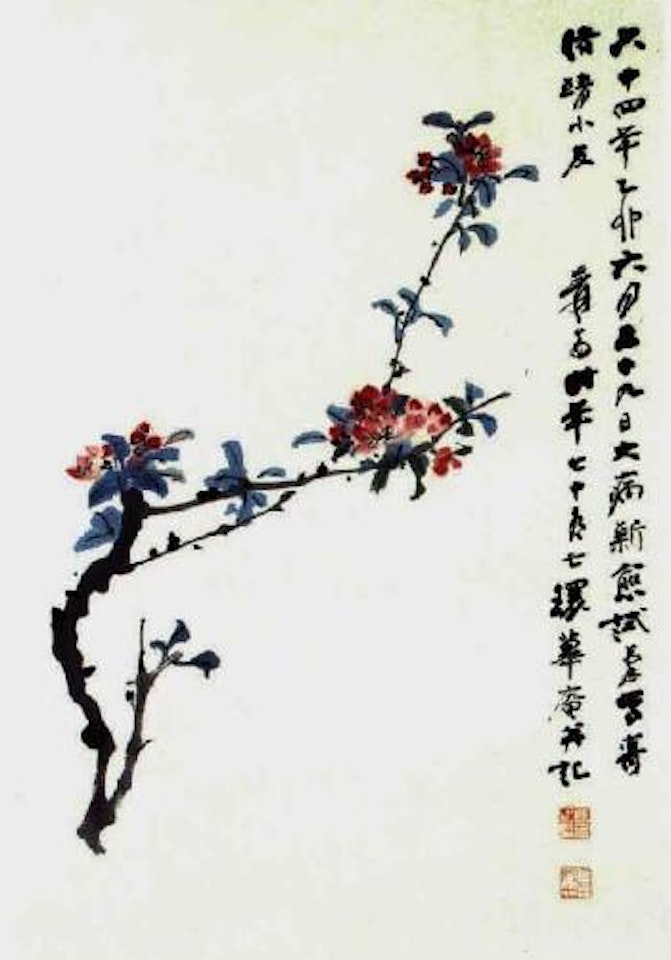 六十四年乙卯六月二十九日大病新愈試筆寫寄
小友 爰翁時年七十有七環蓽庵并記